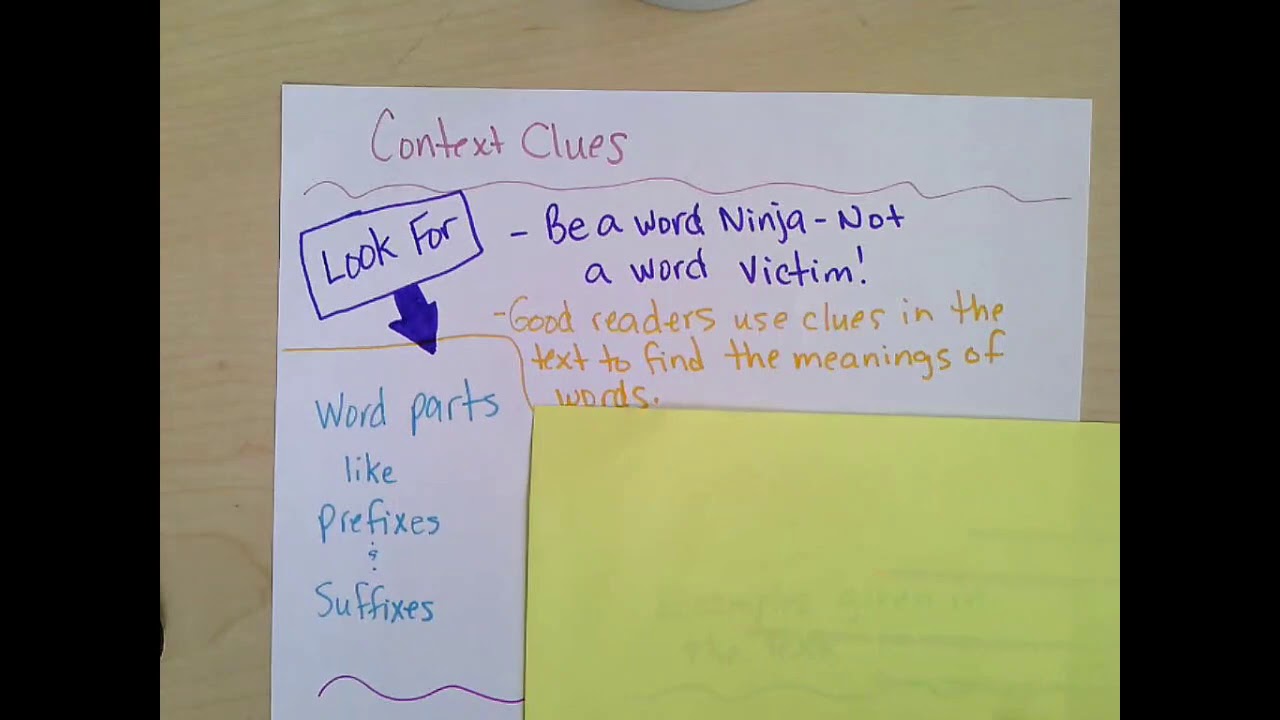 Context Clues
Look For
- Be a word Ninja - Not
a word victim!
- Good readers use clues in the
text to find the meanings of
words.
Word parts
like
prefixes
&
Suffixes